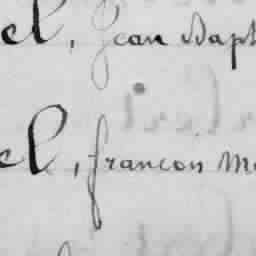 el, Jean Bapt
el, francois Ma